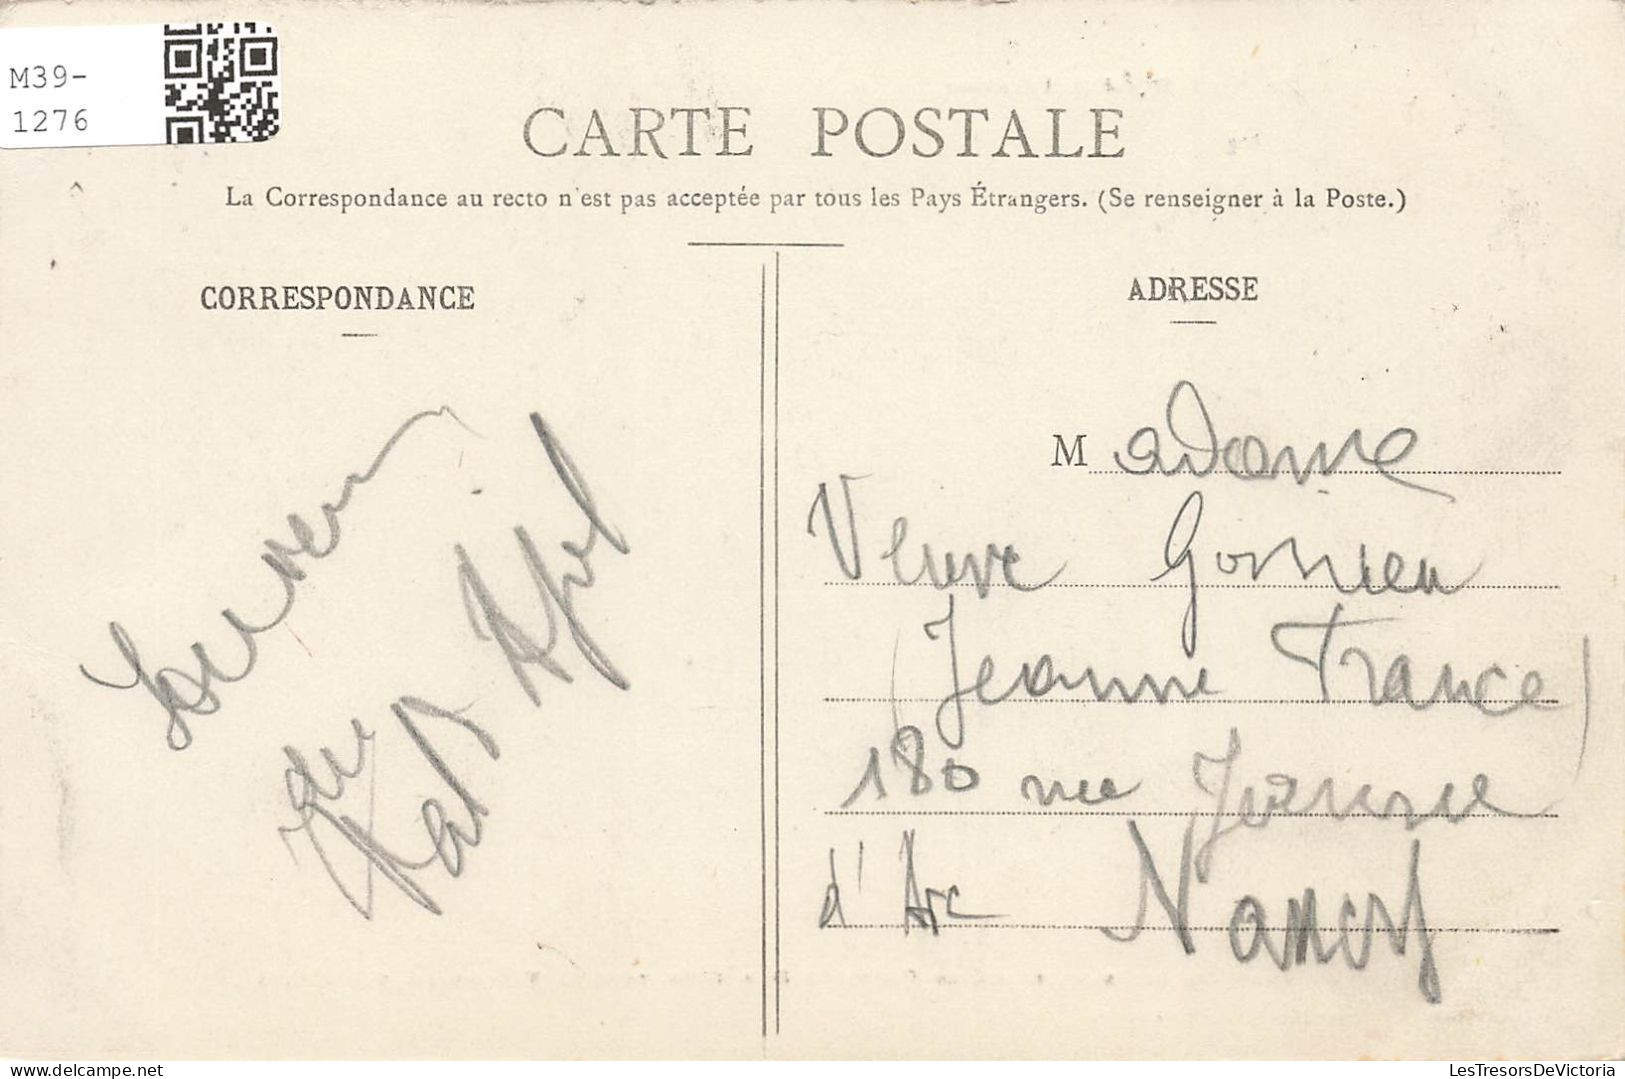 M39-
1276
CARTE POSTALE
La Correspondance au recto n'est pas acceptée par tous les Pays Étrangers. (Se renseigner à la Poste.)
CORRESPONDANCE
Souvenir
du
ADRESSE
Madame
Veuve
Jeanne France
180 rue Jeanne
d'Arc Nancy
delcampe.net
LesTresorsDeVictoria